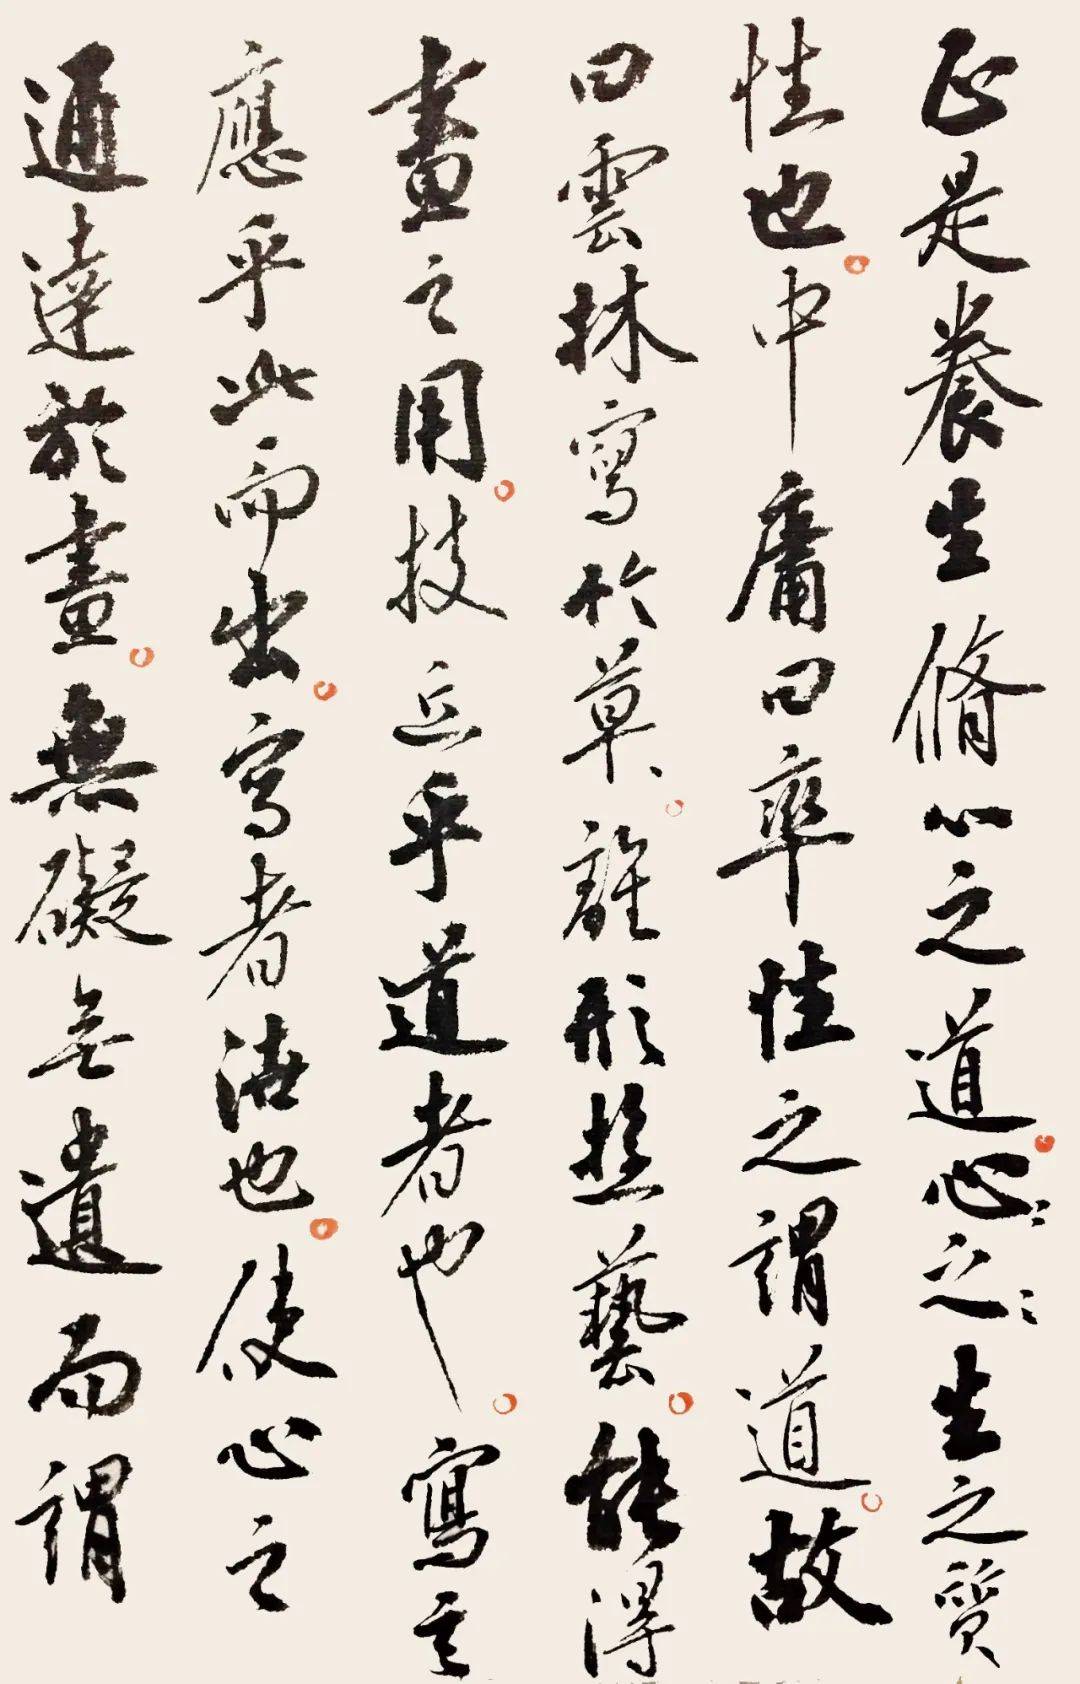 正是養生脩心之道心〻之〻生之質
性也中庸曰率性之謂道故
曰雲林寫於草、離形藝能得
畫之用技近乎道者也寫
應乎此而出寫者也使心之
通達於畫無礙無遺而謂